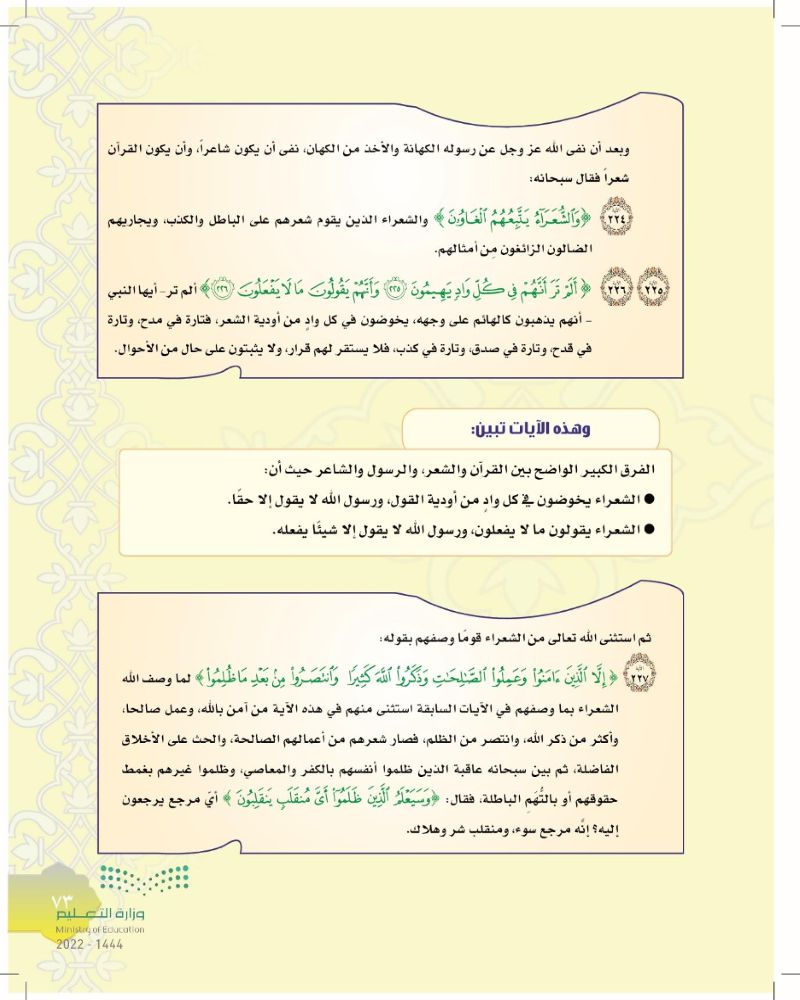 وبعد أن نفى الله عز وجل عن رسوله الكهانة والأخذ من الكهان، نفى أن يكون شاعراً، وأن يكون القرآن
شعراً فقال سبحانه:
٢٢٤ ﴿وَٱلشُّعَرَآءُ يَتَّبِعُهُمُ ٱلْغَاوُۥنَ﴾ والشعراء الذين يقوم شعرهم على الباطل والكذب، ويجاريهم
الضالون الزائغون مِن أمثالهم.
٢٢٥ ٢٢٦ ﴿أَلَمْ تَرَ أَنَّهُمْ فِي كُلِّ وَادٍ يَهِيمُونَ ٢٢٥ وَأَنَّهُمْ يَقُولُونَ مَا لَا يَفْعَلُونَ ٢٢٦﴾ ألم تر- أيها النبي
- أنهم يذهبون كالهائم على وجهه، يخوضون في كل وادٍ من أودية الشعر، فتارة في مدح، وتارة
في قدح، وتارة في صدق، وتارة في كذب، فلا يستقر لهم قرار، ولا يثبتون على حال من الأحوال.
وهذه الآيات تبين:
الفرق الكبير الواضح بين القرآن والشعر، والرسول والشاعر حيث أن:
● الشعراء يخوضون في كل وادٍ من أودية القول، ورسول الله لا يقول إلا حقًا.
● الشعراء يقولون ما لا يفعلون، ورسول الله لا يقول إلا شيئًا يفعله.
ثم استثنى الله تعالى من الشعراء قومًا وصفهم بقوله:
٢٢٧ ﴿إِلَّا ٱلَّذِينَ ءَامَنُوا۟ وَعَمِلُوا۟ ٱلصَّـٰلِحَـٰتِ وَذَكَرُوا۟ ٱللَّهَ كَثِيرًا وَٱنتَصَرُوا۟ مِنۢ بَعْدِ مَا ظُلِمُوا۟﴾ لما وصف الله
الشعراء بما وصفهم في الآيات السابقة استثنى منهم في هذه الآية من آمن بالله، وعمل صالحا،
وأكثر من ذكر الله، وانتصر من الظلم، فصار شعرهم من أعمالهم الصالحة، والحث على الأخلاق
الفاضلة، ثم بين سبحانه عاقبة الذين ظلموا أنفسهم بالكفر والمعاصي، وظلموا غيرهم بغمط
حقوقهم أو بالتُّهَمِ الباطلة، فقال: ﴿وَسَيَعْلَمُ ٱلَّذِينَ ظَلَمُوٓا۟ أَىَّ مُنقَلَبٍ يَنقَلِبُونَ﴾ أيَ مرجع يرجعون
إليه؟ إنَّه مرجع سوء، ومنقلب شر وهلاك.
٧٣
وزارة التعليم
Ministry of Education
2022 - 1444